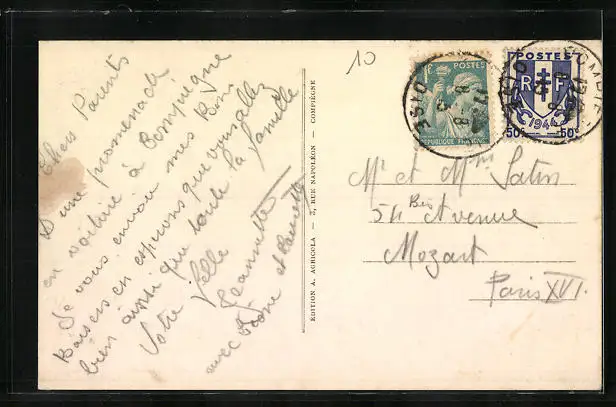 10
Chers Parents
D'une promenade
en voiture à Compiègne
Je vous envoie mes Bons
Baisers en espérons que vous allez
bien ainsi que toute la famille
Votre fille
Jeannette
avec et Paulette
ÉDITION A. AGRICOLA — 3, RUE NAPOLÉON — COMPIÈGNE
1F POSTES
RÉPUBLIQUE FRANÇAISE
POSTES
R F
50c 1944 50c
OISE
OISE
Mr et Mme Satin
54 Bis Avenue
Mozart
Paris XVI.